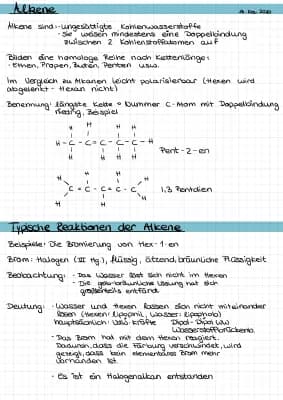 Alkene
Alkene sind: - ungesättigte Kohlenwasserstoffe
- Sie weisen mindestens eine Doppelbindung
zwischen 2 Kohlenstoffatomen auf
Bilden eine homologe Reihe nach Kettenlänge:
- Ethen, Propen, Buten, Penten usw.
Im Vergleich zu Alkanen leicht polarisierbar (Hexen wird
abgelenkt - Hexan nicht)
Benennung: längste Kette + Nummer C-Atom mit Doppelbindung
niedrig, Beispiel
H H
H - C - C = C - C - C - H
H H H H
Pent-2-en
H H H
C = C - C = C - C
H H H
1,3 Pentdien
Typische Reaktionen der Alkene
Beispiele: Die Bromierung von Hex-1-en
Brom: Halogen (VII Hg.), flüssig, ätzend, bräunliche Flüssigkeit
Beobachtung: - Das Wasser löst sich nicht im Hexen
- Die gelb-bräunliche Lösung hat sich
größtenteils entfärbt
Deutung: - Wasser und Hexen lassen sich nicht miteinander
lösen (Hexen: lipophil, Wasser: lipophob)
hauptsächlich: VdW. Kräfte Dipol-Dipol WW
Wasserstoffbrückenb.
- Das Brom hat mit dem Hexen reagiert.
Dadurch, dass die Färbung verschwindet, wird
gezeigt, dass kein elementares Brom mehr
vorhanden ist.
- Es ist ein Halogenalkan entstanden